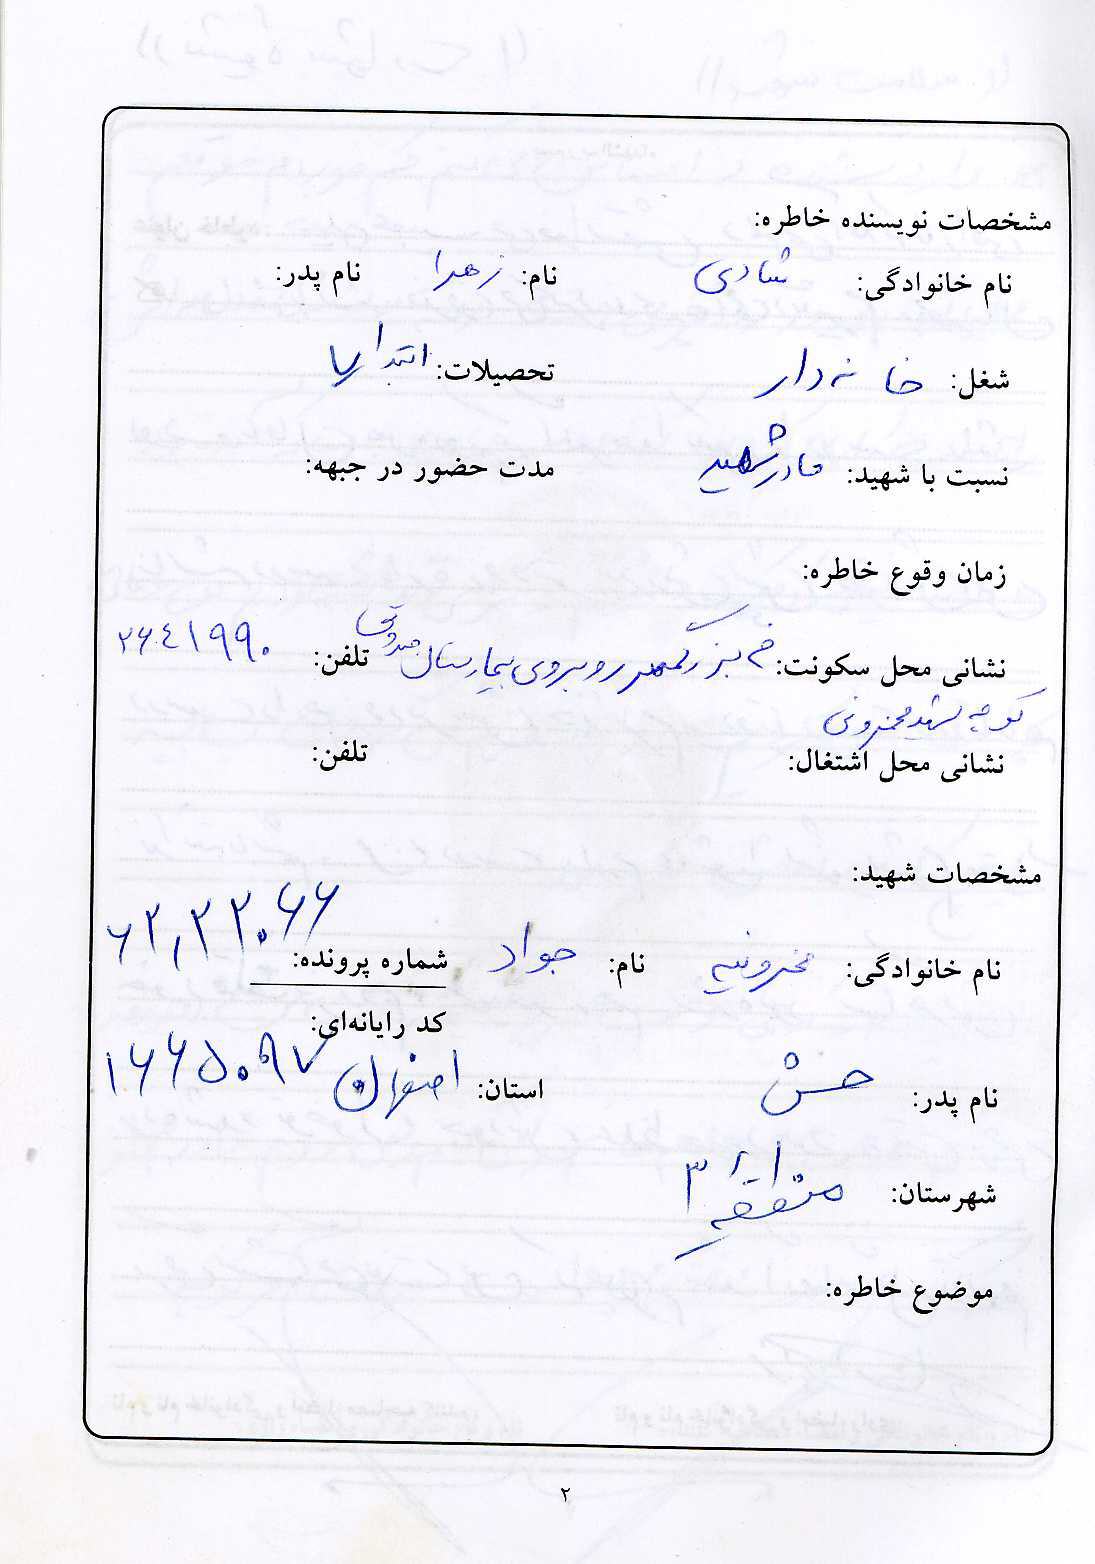 مشخصات نویسنده خاطره:
نام خانوادگی: شادی نام: زهرا نام پدر:
شغل: خانه دار تحصیلات: ابتدایی
نسبت با شهید: مادر شهید مدت حضور در جبهه:
زمان وقوع خاطره:
نشانی محل سکونت: خ بزرگمهر روبروی بیمارستان تلفن: ۲۶۴۱۹۹۰
کوچه شهید محزونی
نشانی محل اشتغال: تلفن:
مشخصات شهید:
نام خانوادگی: محزونیه نام: جواد شماره پرونده:
کد رایانه‌ای: ۱۶۶۵۰۹۷
نام پدر: حسن استان: اصفهان
شهرستان: منطقه ۳
موضوع خاطره:
۲